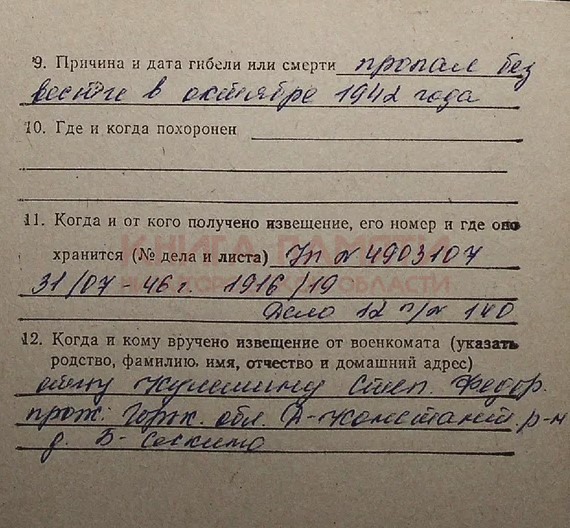 9. Причина и дата гибели или смерти пропал без
вести в октябре 1942 года
10. Где и когда похоронен
11. Когда и от кого получено извещение, его номер и где оно
КНИГА ПАМЯТИ
хранится (№ дела и листа) Уп № 4903107
НИЖЕГОРОДСКОЙ ОБЛАСТИ
31/07-46 г. 1916/19
Дело 12 п/№ 140
12. Когда и кому вручено извещение от военкомата (указать
родство, фамилию, имя, отчество и домашний адрес)
отцу Кулемину Степ. Федор.
прож: Горьк. обл. Д-Констант. р-н
д. Б-Сескино